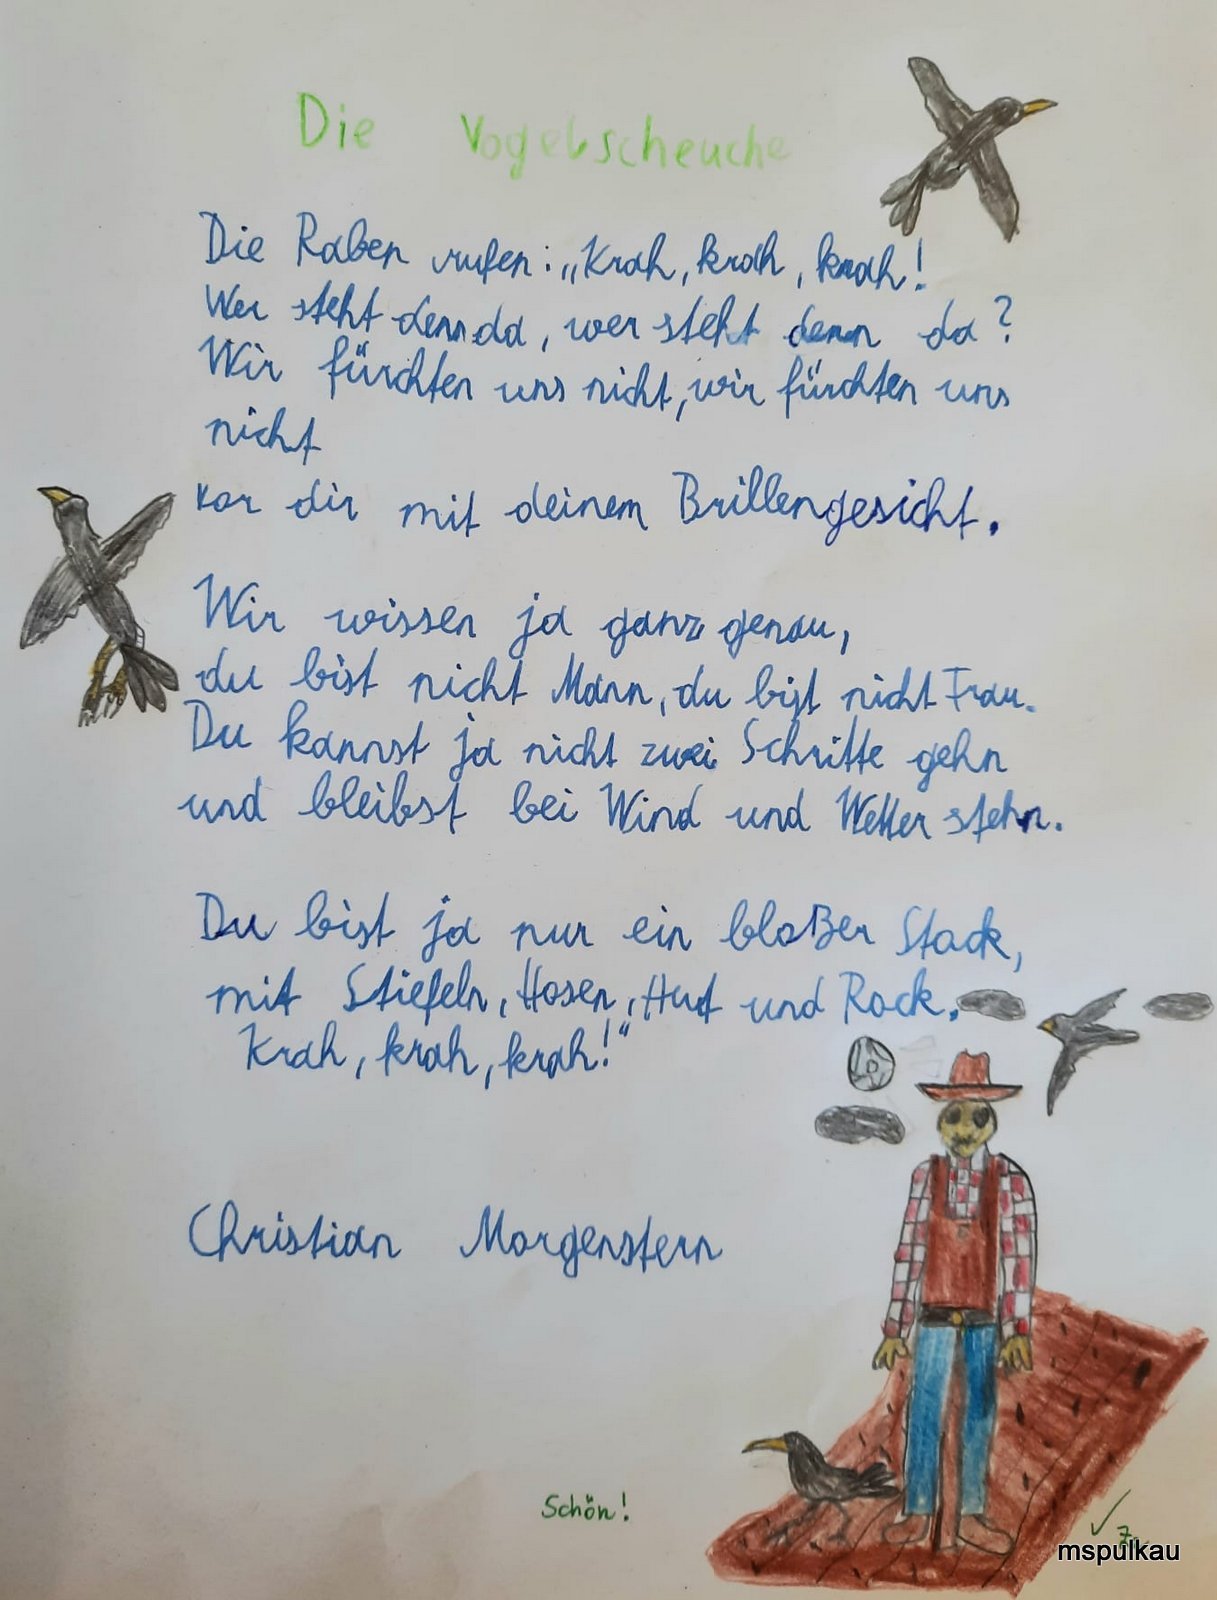 Die Vogelscheuche
Die Raben rufen: „Krah, krah, krah!
Wer steht denn da, wer steht denn da?
Wir fürchten uns nicht, wir fürchten uns
nicht
vor dir mit deinem Brillengesicht.
Wir wissen ja ganz genau,
du bist nicht Mann, du bist nicht Frau.
Du kannst ja nicht zwei Schritte gehn
und bleibst bei Wind und Wetter stehn.
Du bist ja nur ein bloßer Stock,
mit Stiefeln, Hosen, Hut und Rock.
Krah, krah, krah!“
Christian Morgenstern
Schön!
mspulkau